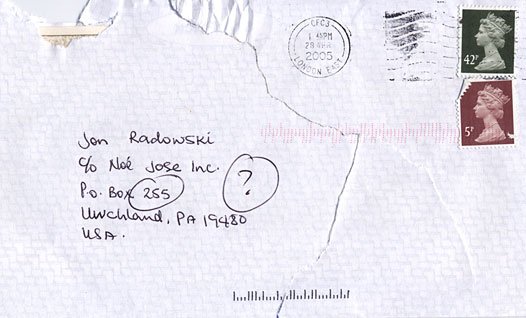 CFC3
PM
28 APR
2005
LONDON EAST
42P
5P
Jon Radowski
c/o Noé Jose Inc.
P.O. Box 255
?
Uwchland, PA 19480
USA.